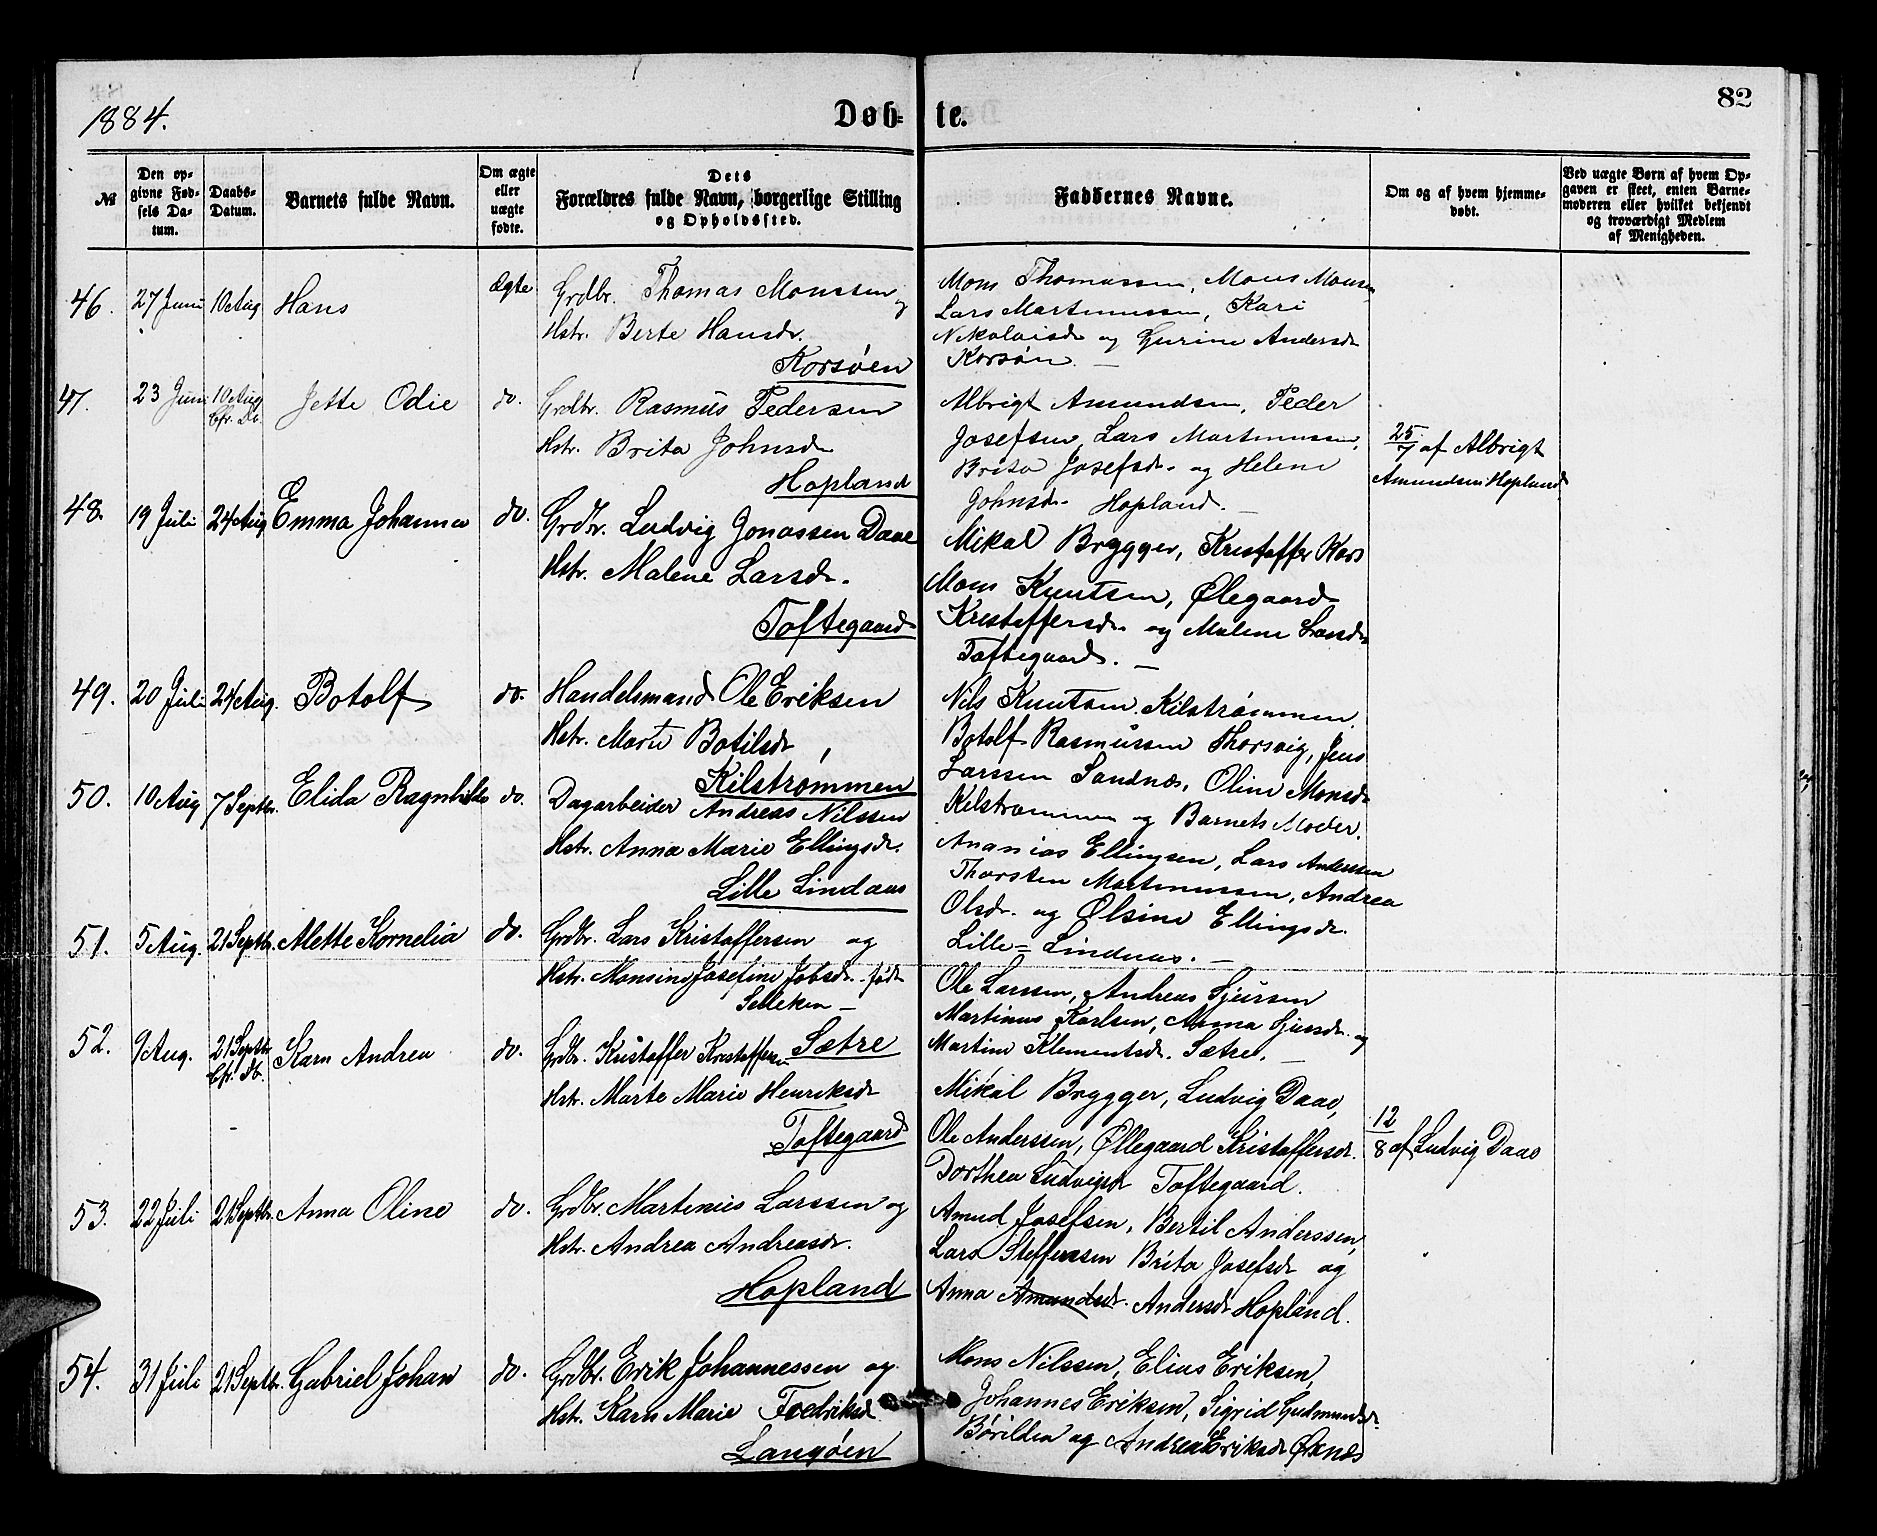 1884.
Døb-te.
82
№
Den op-
givne Fød-
sels Da-
tum.
Daabs-
Datum.
Barnets fulde Navn.
Om ægte
eller
uægte
fødte.
Dets
Forældres fulde Navn, borgerlige Stilling
og Opholdssted.
Faddernes Navne.
Om og af hvem hjemme-
døbt.
Ved uægte Børn af hvem Op-
gaven er skeet, enten Barne-
moderen eller hvilket bekjendt
og troværdigt Medlem
af Menigheden.
46. 27 Juni 10 Aug Hans Ægte
Grdbr. Thomas Monssen og
Hstr. Berte Hansdr.
Korsøen
Mons Thomassen, Mons Monsen
Lars Martinussen, Kari
Nikolaisdr og Gurine Andersdr
Korsøen. —
47. 23 Juni 10 Aug Jette Odie do.
Cfr. Db.
Grdbr. Rasmus Pedersen
Hstr. Brita Johnsdr
Hopland
Albrigt Amundsen, Peder
Josefsen, Lars Martinussen,
Brita Josefsdr. og Helene
Johnsdr. Hopland. —
25/7 af Albrigt
Amundsen Hopland
48. 19 Juli 24 Aug Emma Johanna do.
Grdbr. Ludvig Jonassen Daae
Hstr. Malene Larsdr.
Toftegaard
Mikal Brygger, Kristoffer Kors
Mons Knutsen, Ølegaard
Kristoffersdr. og Malene Larsdr
Toftegaard. —
49. 20 Juli 24 Aug. Botolf do.
Handelsmand Ole Eriksen
Hstr. Marte Botilsdr,
Kilstrømmen
Nils Knutsen. Kilstrømmen.
Botolf Rasmussen Thorsvig, Jens
Larssen Sandnæs, Oline Monsdr
Kilstrømmen og Barnets Moder.
50. 10 Aug 7 Septbr. Elida Ragnhilda do.
Dagarbeider Andreas Nilssen
Hstr. Anna Marie Ellingsdr.
Lille Lindaas
Ananias Ellingsen, Lars Anderssen
Thorsten Martinussen, Andrea
Olsdr. og Ølsine Ellingsdr.
Lille-Lindaas. —
51. 5 Aug. 21 Septbr. Mette Kornelia do.
Grdbr. Lars Kristoffersen og
Hstr. Monsine Josefine Jobsdr. født
Selleken —
Sætre
Ole Larssen, Andreas Sjurssen
Martinus Karlsen, Anna Sjursdr. og
Martine Klementsdr. Sætre. —
52. 9 Aug. 21 Septbr Karn Andrea do.
Cfr. Db.
Grdbr. Kristoffer Kristoffersen
Hstr. Marte Marie Henriksdr
Toftegaard
Mikal Brygger, Ludvig Daae,
Ole Anderssen, Øllegaard Kristoffersdr.
Dorthea Ludvigsdr Toftegaard.
12/8 af Ludvig Daae
53. 22 Juli 21 Septbr. Anna Oline do.
Grdbr. Martinus Larssen og
Hstr. Andrea Andreasdr.
Hopland
Amund Josefsen, Bertil Anderssen,
Lars Steffenssen Brita Josefsdr og
Anna Amundsdr. Andersdr Hopland.
54. 31 Juli 21 Septbr. Gabriel Johan do.
Grdbr. Erik Johannessen og
Hstr. Karn Marie Fredriksdr
Langøen
Mons Nilssen, Elias Eriksen,
Johannes Eriksen, Sigrid Gudmundsdr.
Børilden og Andrea Eriksdr Øknes